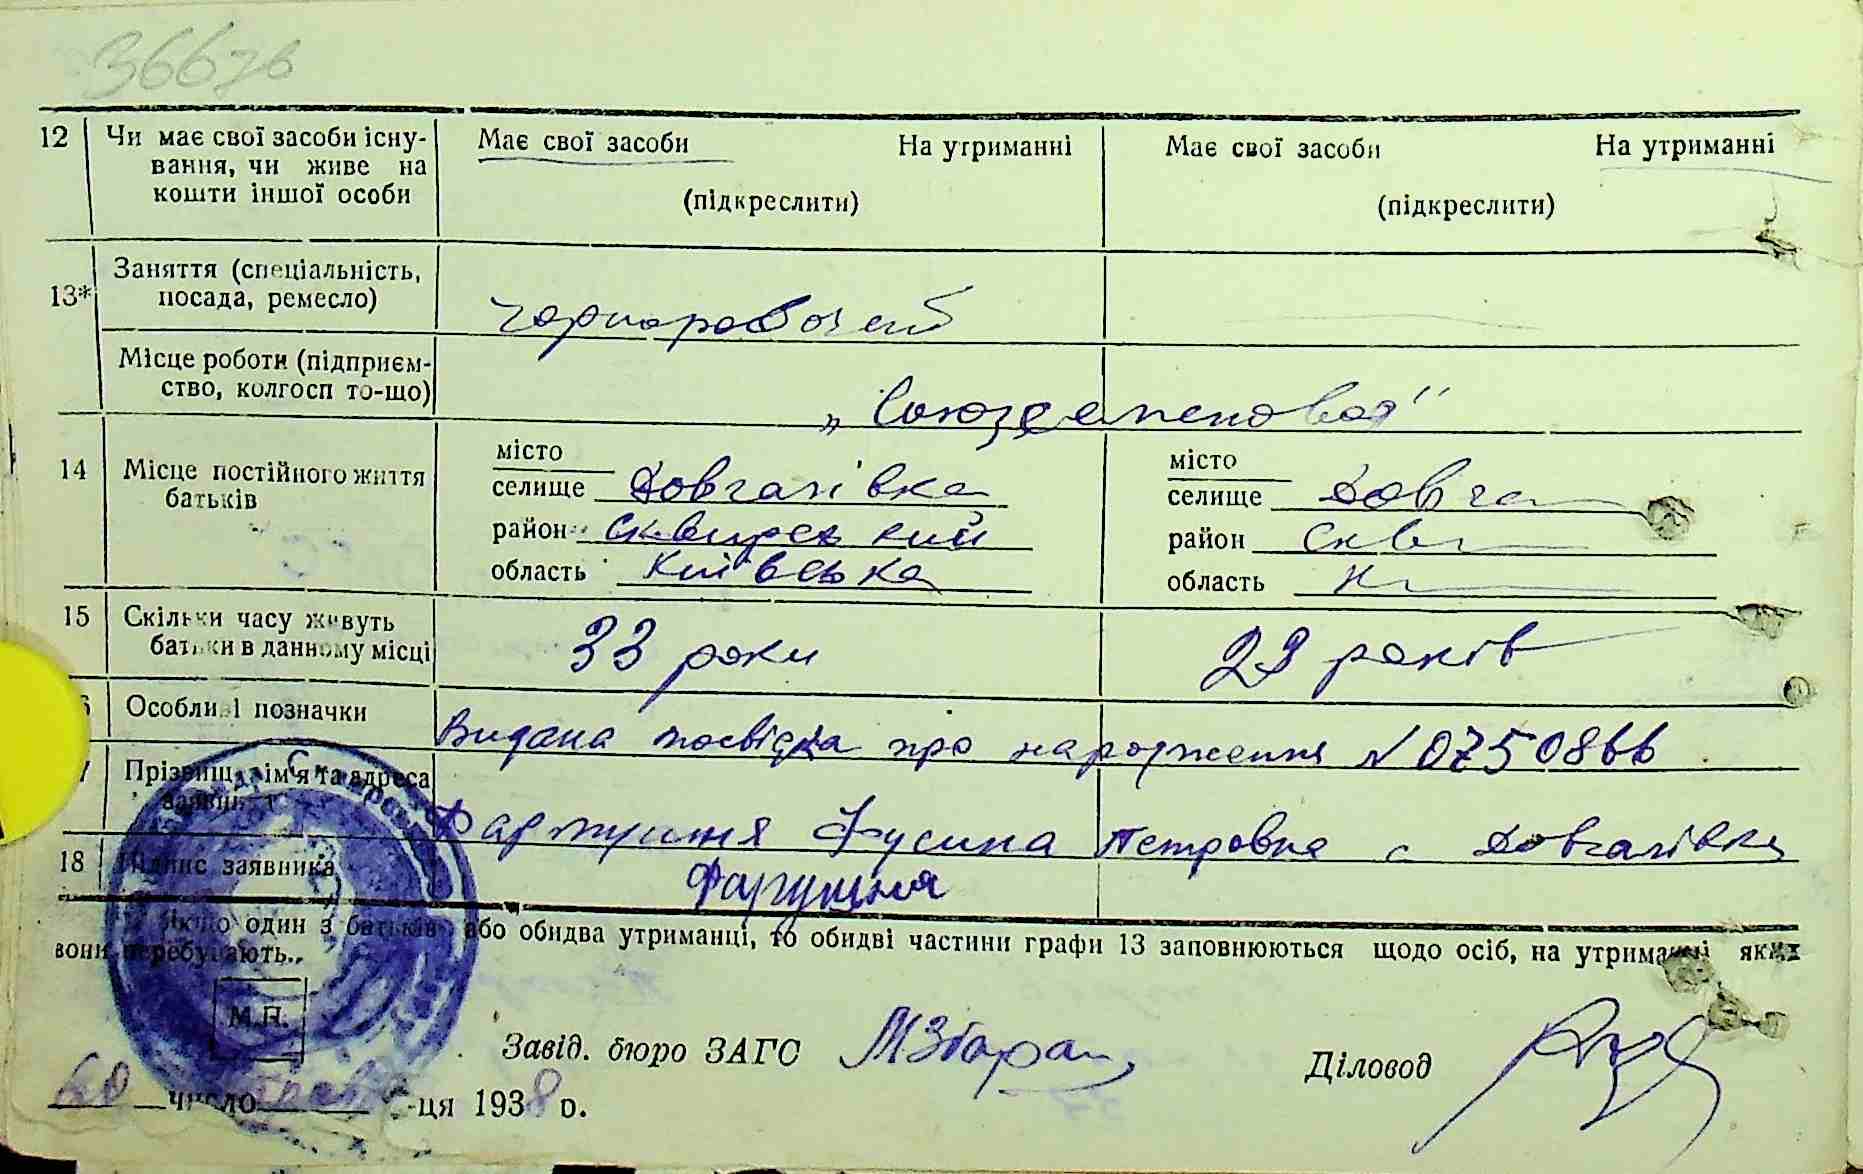 3667в
12 Чи має свої засоби існу- Має свої засоби На утриманні Має свої засоби На утриманні
вання, чи живе на
кошти іншої особи (підкреслити) (підкреслити)
13* Заняття (спеціальність,
посада, ремесло) чорноробочий
Місце роботи (підприєм-
ство, колгосп то-що)
14 Місце постійного життя батьків
місто місто
селище Довгалівка селище Довга
район Сквирський район Скв
область Київська область К
15 Скільки часу живуть
батьки в данному місці 33 роки 23 років
Особливі позначки Видана посвідка про народження №0750866
Прізвище, ім'я та адреса
Петровна с Довгалівка
18 Підпис заявника
Якщо один з батьків або обидва утриманці, то обидві частини графи 13 заповнюються щодо осіб, на утриманні яких
вони перебувають.
М.П.
Завід. бюро ЗАГС Діловод
число -ця 1938 р.